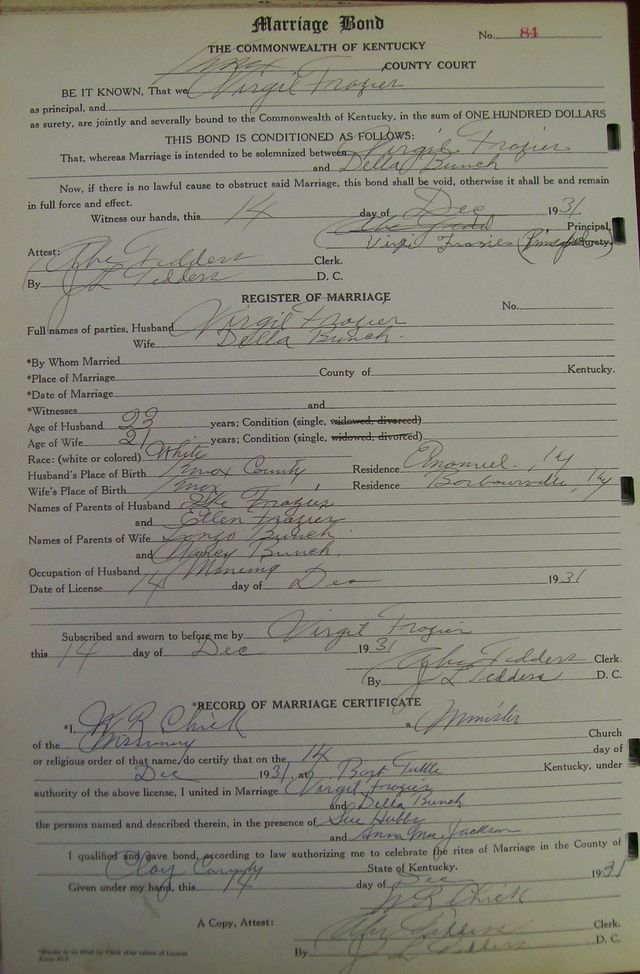 Marriage Bond
No. 84
THE COMMONWEALTH OF KENTUCKY
Knox COUNTY COURT
BE IT KNOWN, That we Virgil Frazier
as principal, and
as surety, are jointly and severally bound to the Commonwealth of Kentucky, in the sum of ONE HUNDRED DOLLARS
THIS BOND IS CONDITIONED AS FOLLOWS:
That, whereas Marriage is intended to be solemnized between Virgil Frazier
and Della Bunch
Now, if there is no lawful cause to obstruct said Marriage, this bond shall be void, otherwise it shall be and remain
in full force and effect.
Witness our hands, this 14 day of Dec 1931.
Principal,
Virgil Frazier (Principal) Surety.
Attest: Abe Fidders Clerk.
By J L Tedders D. C.
REGISTER OF MARRIAGE
No.
Full names of parties, Husband Virgil Frozier
Wife Della Bunch.
*By Whom Married
*Place of Marriage County of Kentucky.
*Date of Marriage
*Witnesses and
Age of Husband 22 years; Condition (single, widowed, divorced)
Age of Wife 21 years; Condition (single, widowed, divorced)
Race: (white or colored) White
Husband's Place of Birth Knox County Residence Emanuel, Ky
Wife's Place of Birth Knox Residence Barbourville, Ky
Names of Parents of Husband Frazier
and Ellen Frazier
Names of Parents of Wife Bunch
and Nancy Bunch.
Occupation of Husband Mineing
Date of License 14 day of Dec 1931
Subscribed and sworn to before me by Virgil Frozier
this 14 day of Dec 1931
Abe Fidders Clerk.
By J L Tedders D. C.
*RECORD OF MARRIAGE CERTIFICATE
*I, W R Chick a Minister
of the Missionary Church
or religious order of that name, do certify that on the 14 day of
Dec 1931, at Bort Tuttle Kentucky, under
authority of the above license, I united in Marriage Virgil Frozier
and Della Bunch
the persons named and described therein, in the presence of Sue Hubbs
and Anna Mae Jackson
I qualified and gave bond, according to law authorizing me to celebrate the rites of Marriage in the County of
Clay County State of Kentucky.
Given under my hand, this 14 day of Dec 1931
W R Chick
A Copy, Attest: Abe Fidders Clerk.
By J L Tedders D. C.
*Blanks to be filled by Clerk after return of License